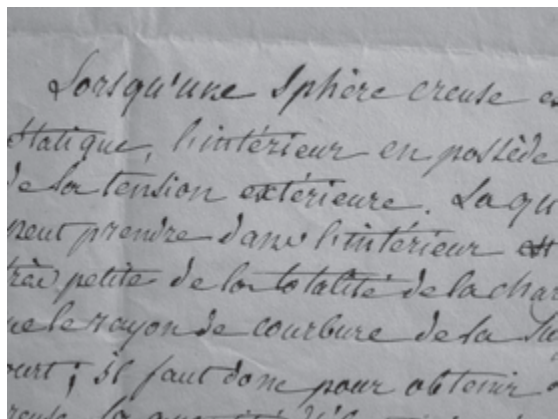 Lorsqu'une Sphère creuse e
statique, l'intérieur en possède
de la tension extérieure. La qu
peut prendre dans l'intérieur
très petite de la totalité de la char
ue le rayon de courbure de la Su
ourt; il faut donc pour obtenir
reuse la quantité